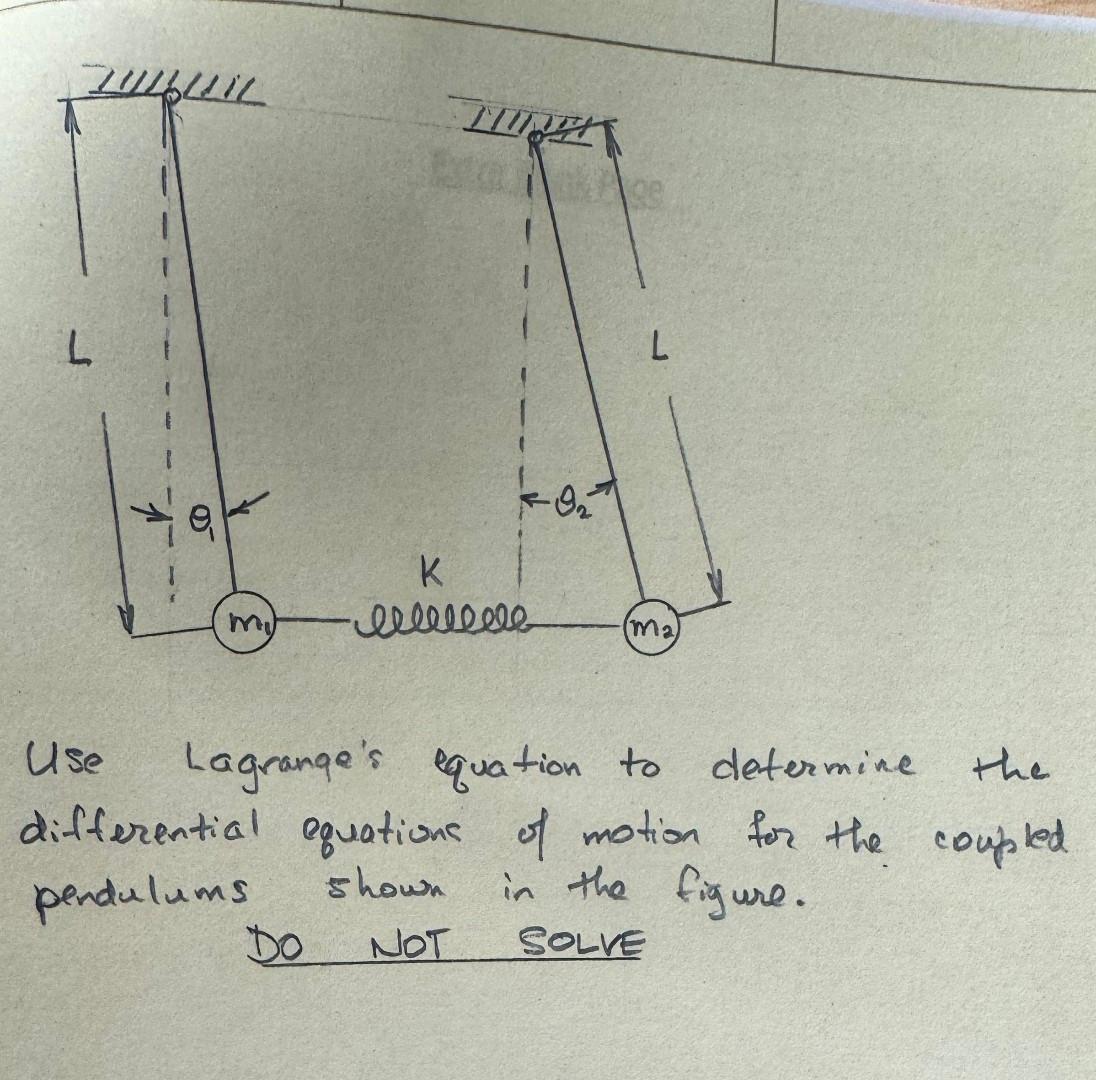 L
L
θ₁
θ₂
K
m₁
m₂
Use Lagrange's equation to determine the
differential equations of motion for the coupled
pendulums shown in the figure.
DO NOT SOLVE